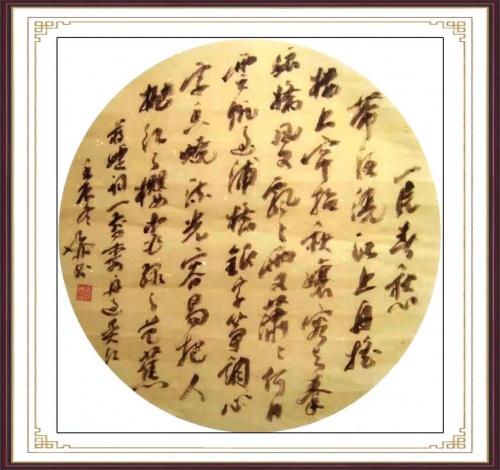 一片春愁
带酒浇江上舟摇
楼上帘招秋娘容与泰
娘娇风又飘飘雨又萧萧何日
云帆卸浦桥银字筝调心
字香烧流光容易把人
抛红了樱桃绿了芭蕉
蒋捷词一剪梅舟过吴江
壬辰冬 书